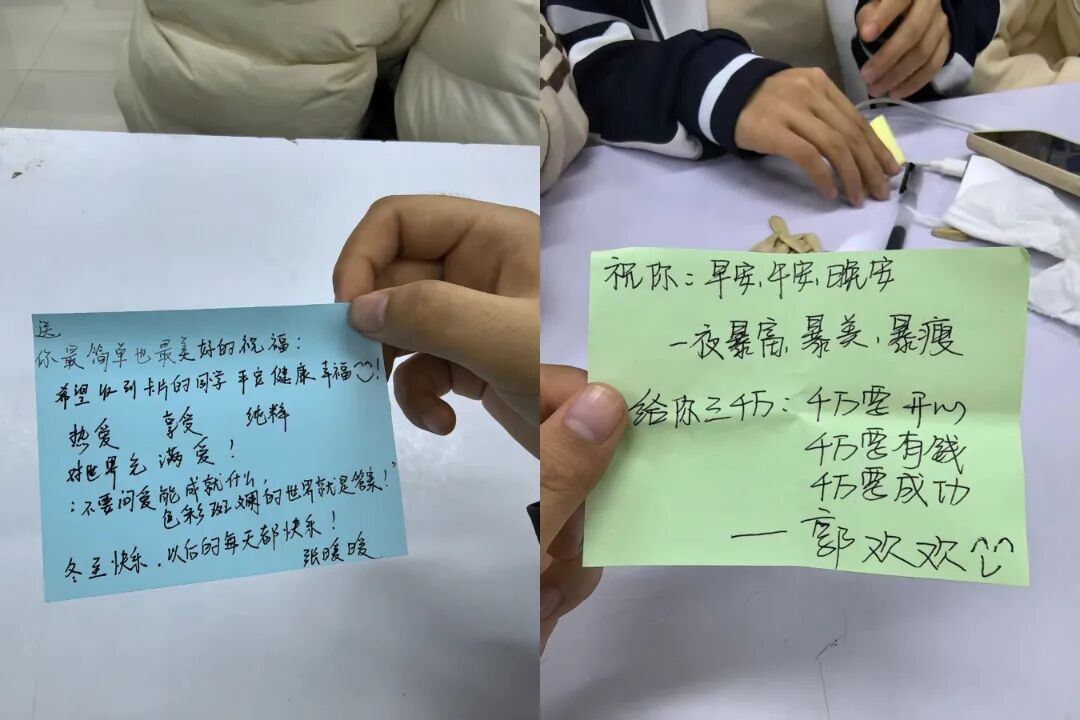 送
你最简单也最美好的祝福：
希望收到卡片的同学平安健康幸福！
热爱 享受 纯粹
对世界充满爱！
：不要问爱能成就什么，
色彩斑斓的世界就是答案！”
冬至快乐，以后的每天都快乐！
张暖暖
祝你：早安，午安，晚安
一夜暴富，暴美，暴瘦
给你三千万：千万要开心
千万要有钱
千万要成功
—郭欢欢